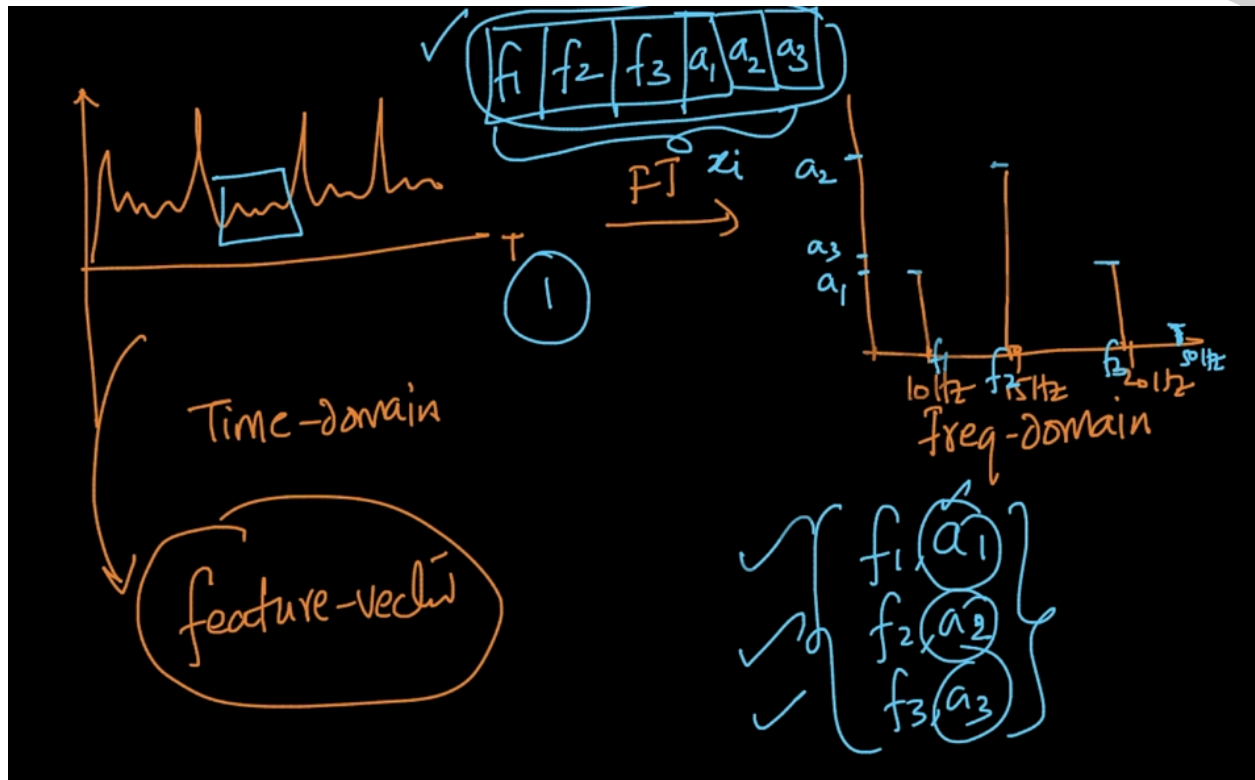 f1 f2 f3 a1 a2 a3
xi
FT
T
1
a2
a3
a1
f1 f2 f3
10Hz 15Hz 20Hz 50Hz
Time-domain
Freq-domain
feature-vector
f1, a1
f2, a2
f3, a3